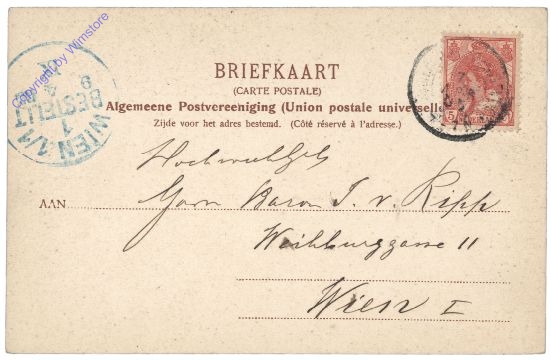 Copyright by Wimstore
WIEN 1/1
BESTELLT
1
9
BRIEFKAART
(CARTE POSTALE)
Algemeene Postvereeniging (Union postale universelle
Zijde voor het adres bestemd. (Côté réservé à l'adresse.)
5
Hochwohlgeb
AAN
Herrn Baron J. v. Ripp
Weihburggasse 11
Wien I